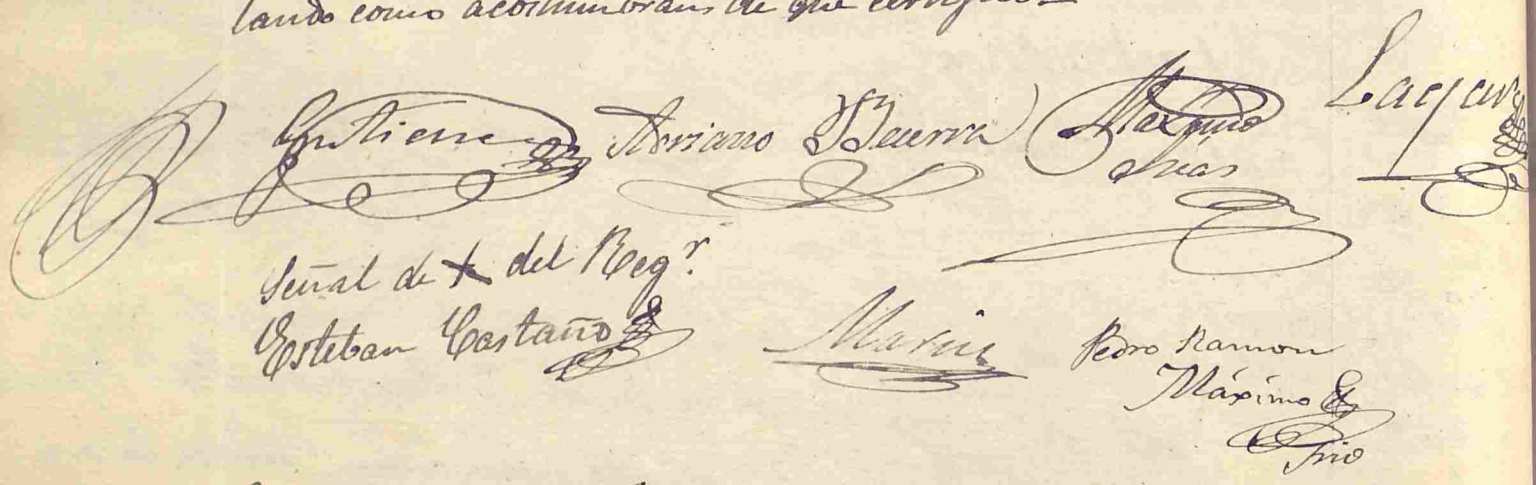 tando como acostumbran, de que certifico=
Gutierrez Adriano Becerra Máximo
Arias
Señal de + del Regr.
Esteban Castaño Marin Pedro Ramon
Máximo
Srio